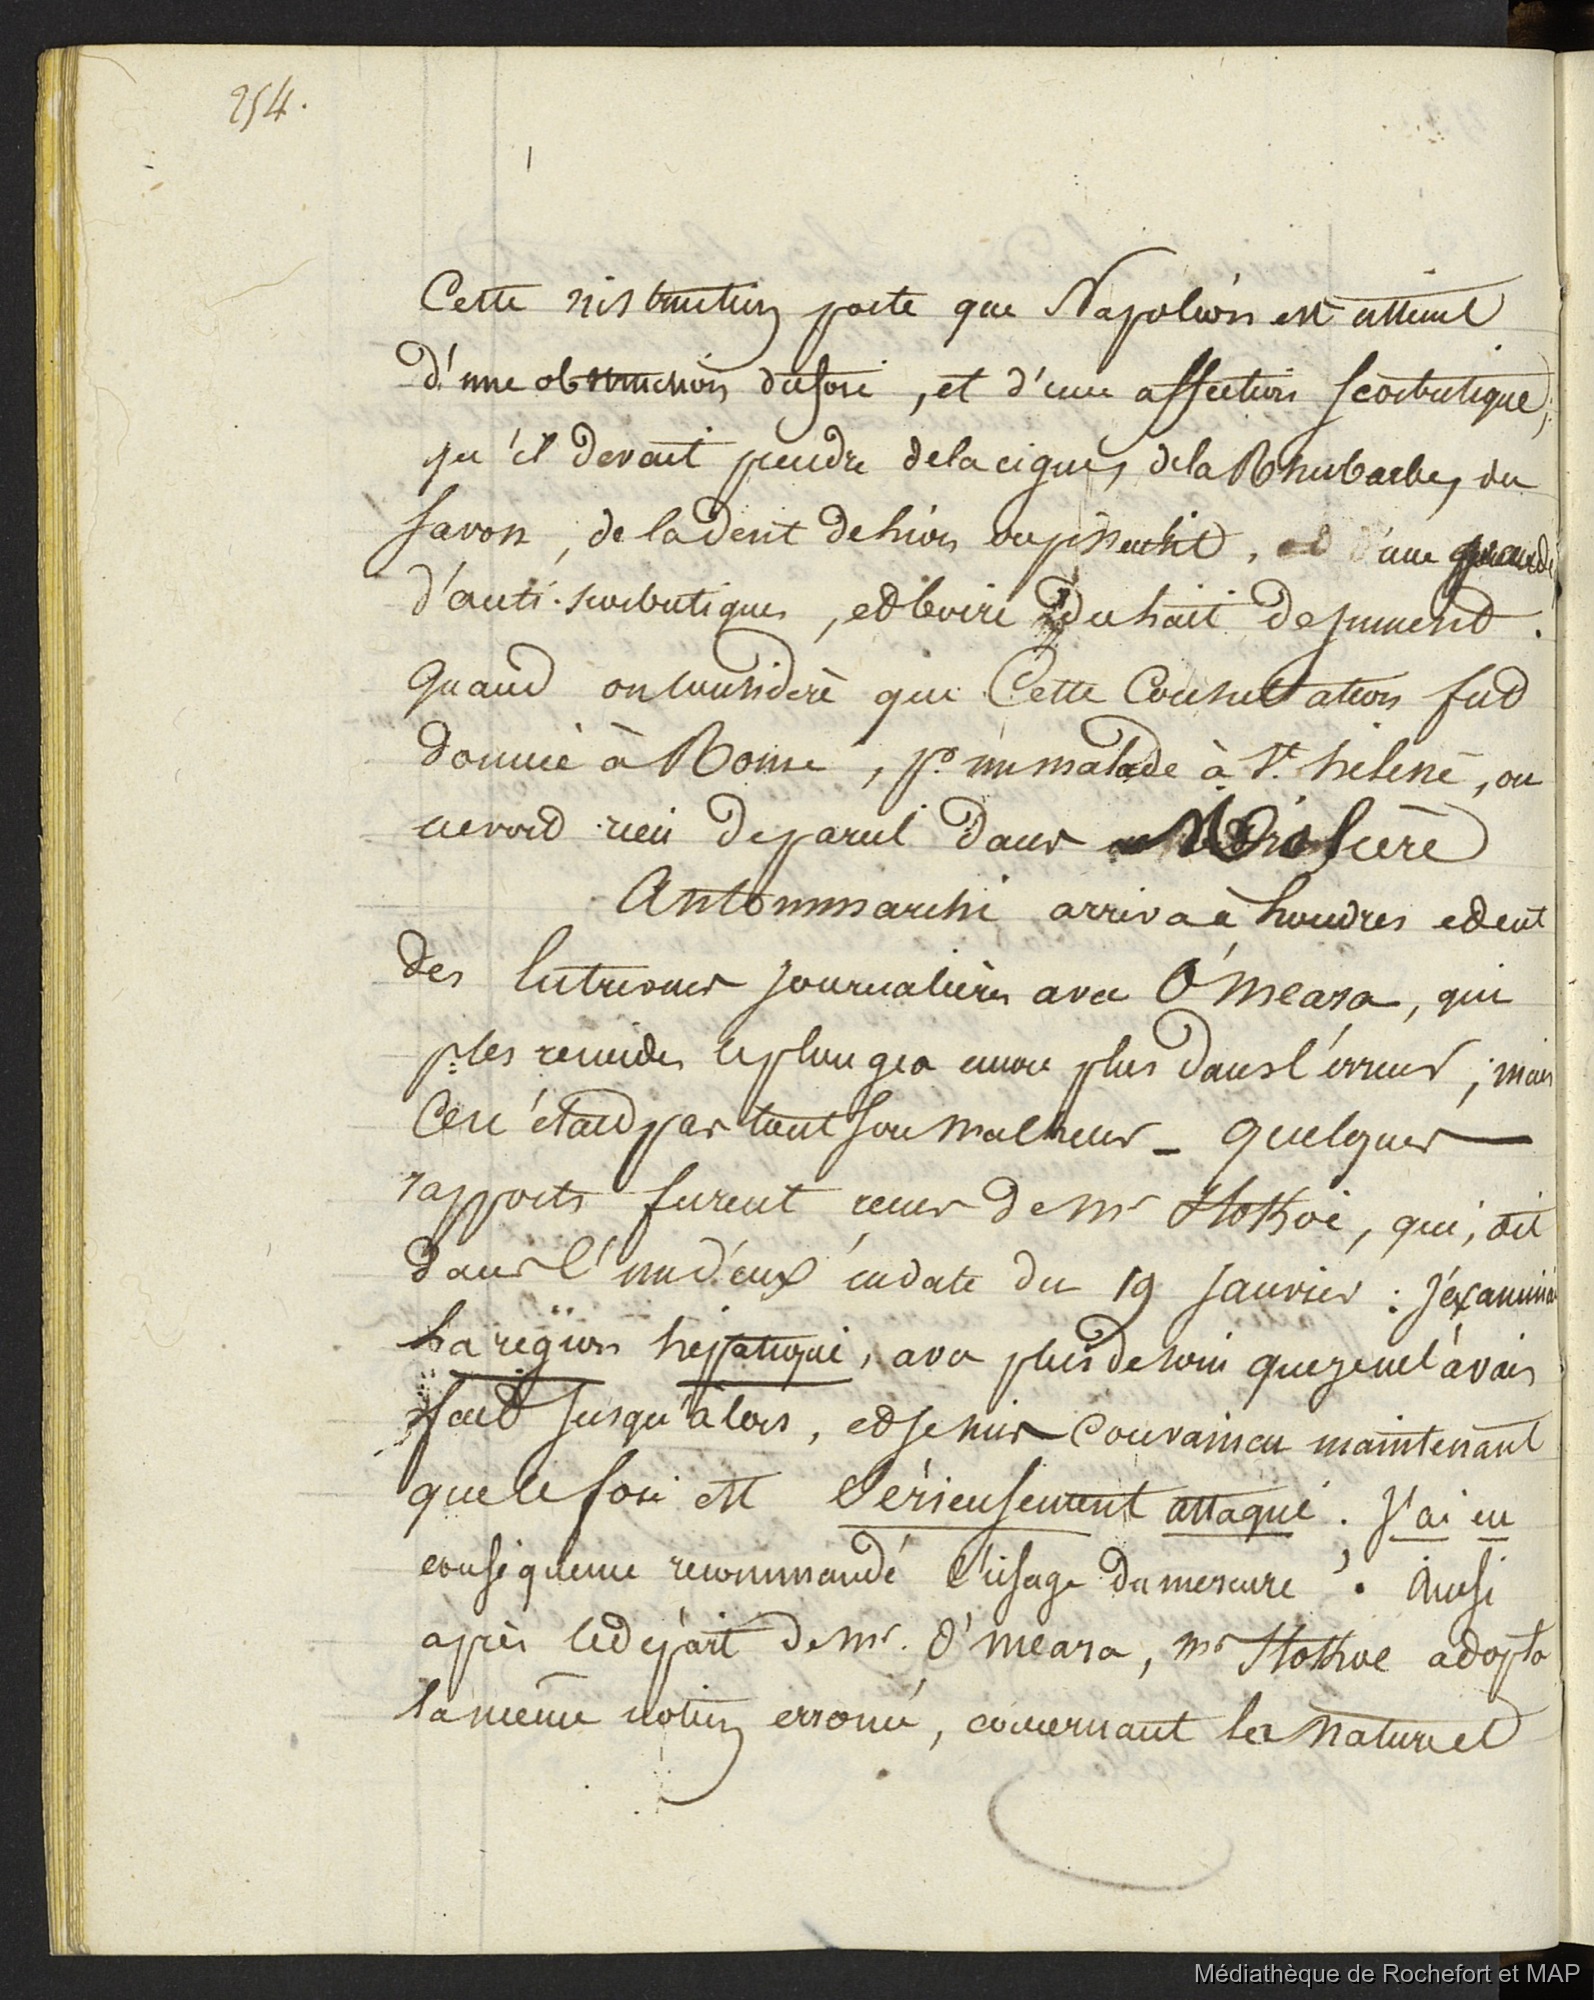 254.
Cette instruction porte que Napoléon est atteint
d'une obstruction du foie, et d'une affection scorbutique,
qu'il devait prendre de la cigue, de la Rhubarbe, du
savon, de la dent de lion ou pissenlit, et d'une grande
d'anti-scorbutiques, et boire du lait de jument.
quand on considère que Cette Consultation fut
donnée à Rome, pr un malade à Ste hélène, on
ne voit rien de pareil dans Molière
Antommarchi arriva à Londres et eut
des Entrevues journalières avec O'Meara, qui
pr les remèdes le plongea encore plus dans l'erreur; mais
Ce n'était pas tout son malheur - quelques
rapports furent reçus de Mr Stokoë, qui, dit
dans l'un d'eux en date du 19 janvier : j'examinai
La région hépatique, avec plus de soin que je ne l'avais
fait jusqu'alors, et je suis Convaincu maintenant
que le foie est Sérieusement attaqué. J'ai en
conséquence recommandé l'usage du mercure. Ainsi
après le départ de Mr. O'Meara, Mr Stokoe adopta
la même notion erronée, concernant la nature et
Médiathèque de Rochefort et MAP